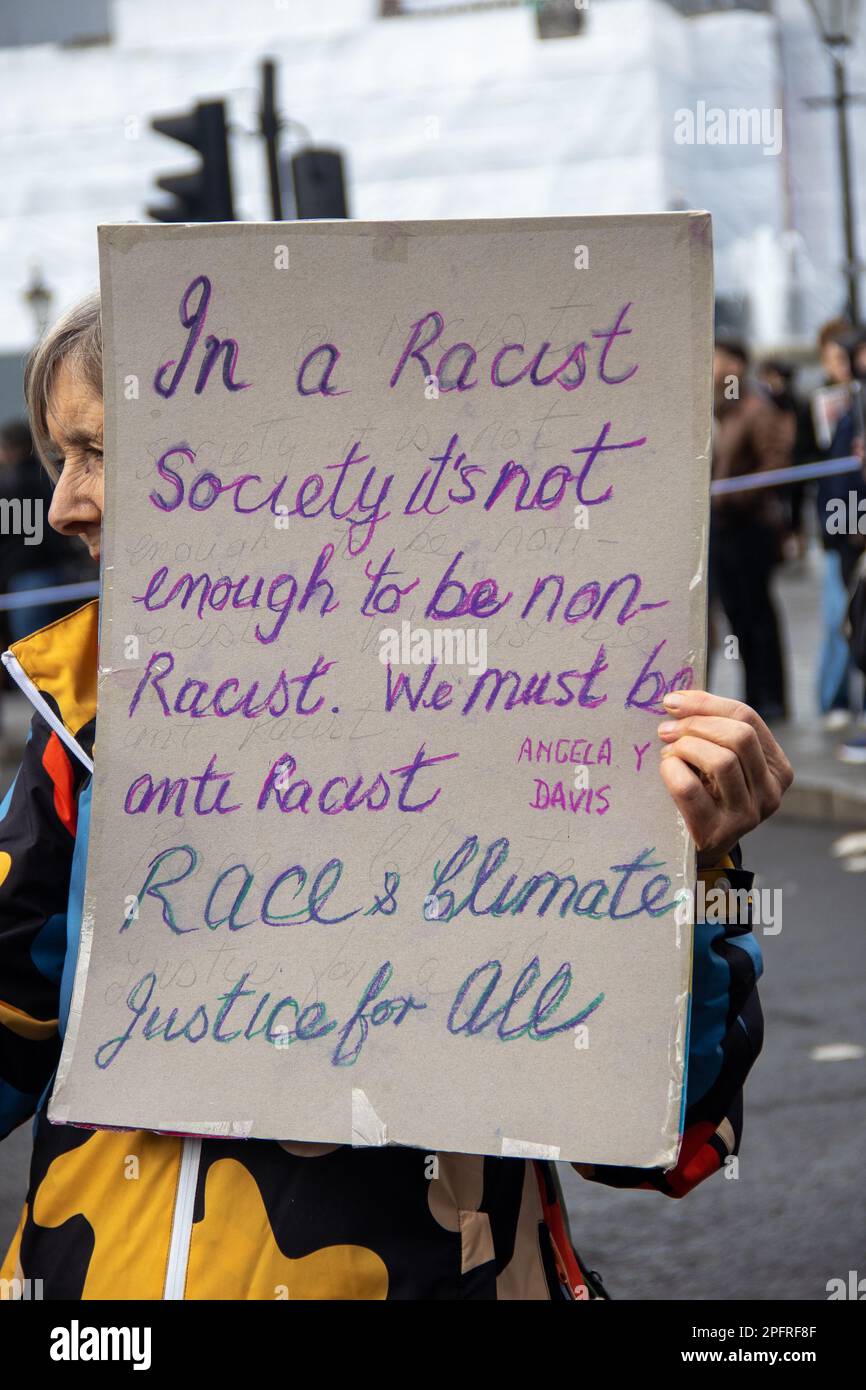 In a Racist
Society it's not
enough to be non-
Racist. We must be
anti Racist
ANGELA Y
DAVIS
Race & Climate
Justice for All
alamy
Image ID: 2PFRF8F
www.alamy.com